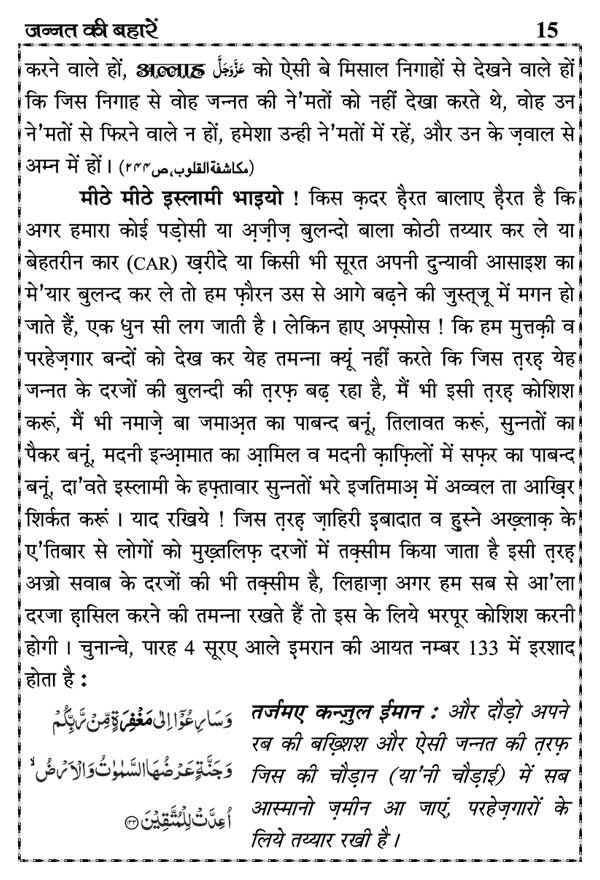 जन्नत की बहारें 15
करने वाले हों, अल्लाह عَزَّوَجَلَّ को ऐसी बे मिसाल निगाहों से देखने वाले हों
कि जिस निगाह से वोह जन्नत की ने'मतों को नहीं देखा करते थे, वोह उन
ने'मतों से फिरने वाले न हों, हमेशा उन्ही ने'मतों में रहें, और उन के ज़वाल से
अम्न में हों। (مکاشفۃ القلوب، ص۲۴۴)
मीठे मीठे इस्लामी भाइयो ! किस क़दर हैरत बालाए हैरत है कि
अगर हमारा कोई पड़ोसी या अ़ज़ीज़ बुलन्दो बाला कोठी तय्यार कर ले या
बेहतरीन कार (CAR) ख़रीदे या किसी भी सूरत अपनी दुन्यावी आसाइश का
मे'यार बुलन्द कर ले तो हम फ़ौरन उस से आगे बढ़ने की जुस्त्जू में मगन हो
जाते हैं, एक धुन सी लग जाती है। लेकिन हाए अफ़्सोस ! कि हम मुत्तक़ी व
परहेज़गार बन्दों को देख कर येह तमन्ना क्यूं नहीं करते कि जिस त़रह़ येह
जन्नत के दरजों की बुलन्दी की त़रफ़ बढ़ रहा है, मैं भी इसी त़रह़ कोशिश
करूं, मैं भी नमाजे़ बा जमाअ़त का पाबन्द बनूं, तिलावत करूं, सुन्नतों का
पैकर बनूं, मदनी इन्आ़मात का आ़मिल व मदनी क़ाफ़िलों में सफ़र का पाबन्द
बनूं, दा'वते इस्लामी के हफ्तावार सुन्नतों भरे इजतिमाअ़ में अव्वल ता आख़िर
शिर्कत करूं। याद रखिये ! जिस त़रह़ ज़ाहिरी इबादात व हुस्ने अख़्लाक़ के
ए'तिबार से लोगों को मुख़्तलिफ़ दरजों में तक़्सीम किया जाता है इसी त़रह़
अज्रो सवाब के दरजों की भी तक़्सीम है, लिहाज़ा अगर हम सब से आ'ला
दरजा ह़ासिल करने की तमन्ना रखते हैं तो इस के लिये भरपूर कोशिश करनी
होगी। चुनान्चे, पारह 4 सूरए आले इमरान की आयत नम्बर 133 में इरशाद
होता है :
وَسَارِعُوْۤا اِلٰى مَغْفِرَةٍ مِّنْ رَّبِّكُمْ
وَجَنَّةٍ عَرْضُهَا السَّمٰوٰتُ وَالْاَرْضُ ۙ
اُعِدَّتْ لِلْمُتَّقِيْنَ ﴿۱۳۳﴾
तर्जमए कन्ज़ुल ईमान : और दौड़ो अपने
रब की बख़्शिश और ऐसी जन्नत की त़रफ़
जिस की चौड़ान (या'नी चौड़ाई) में सब
आस्मानो ज़मीन आ जाएं, परहेज़गारों के
लिये तय्यार रखी है।